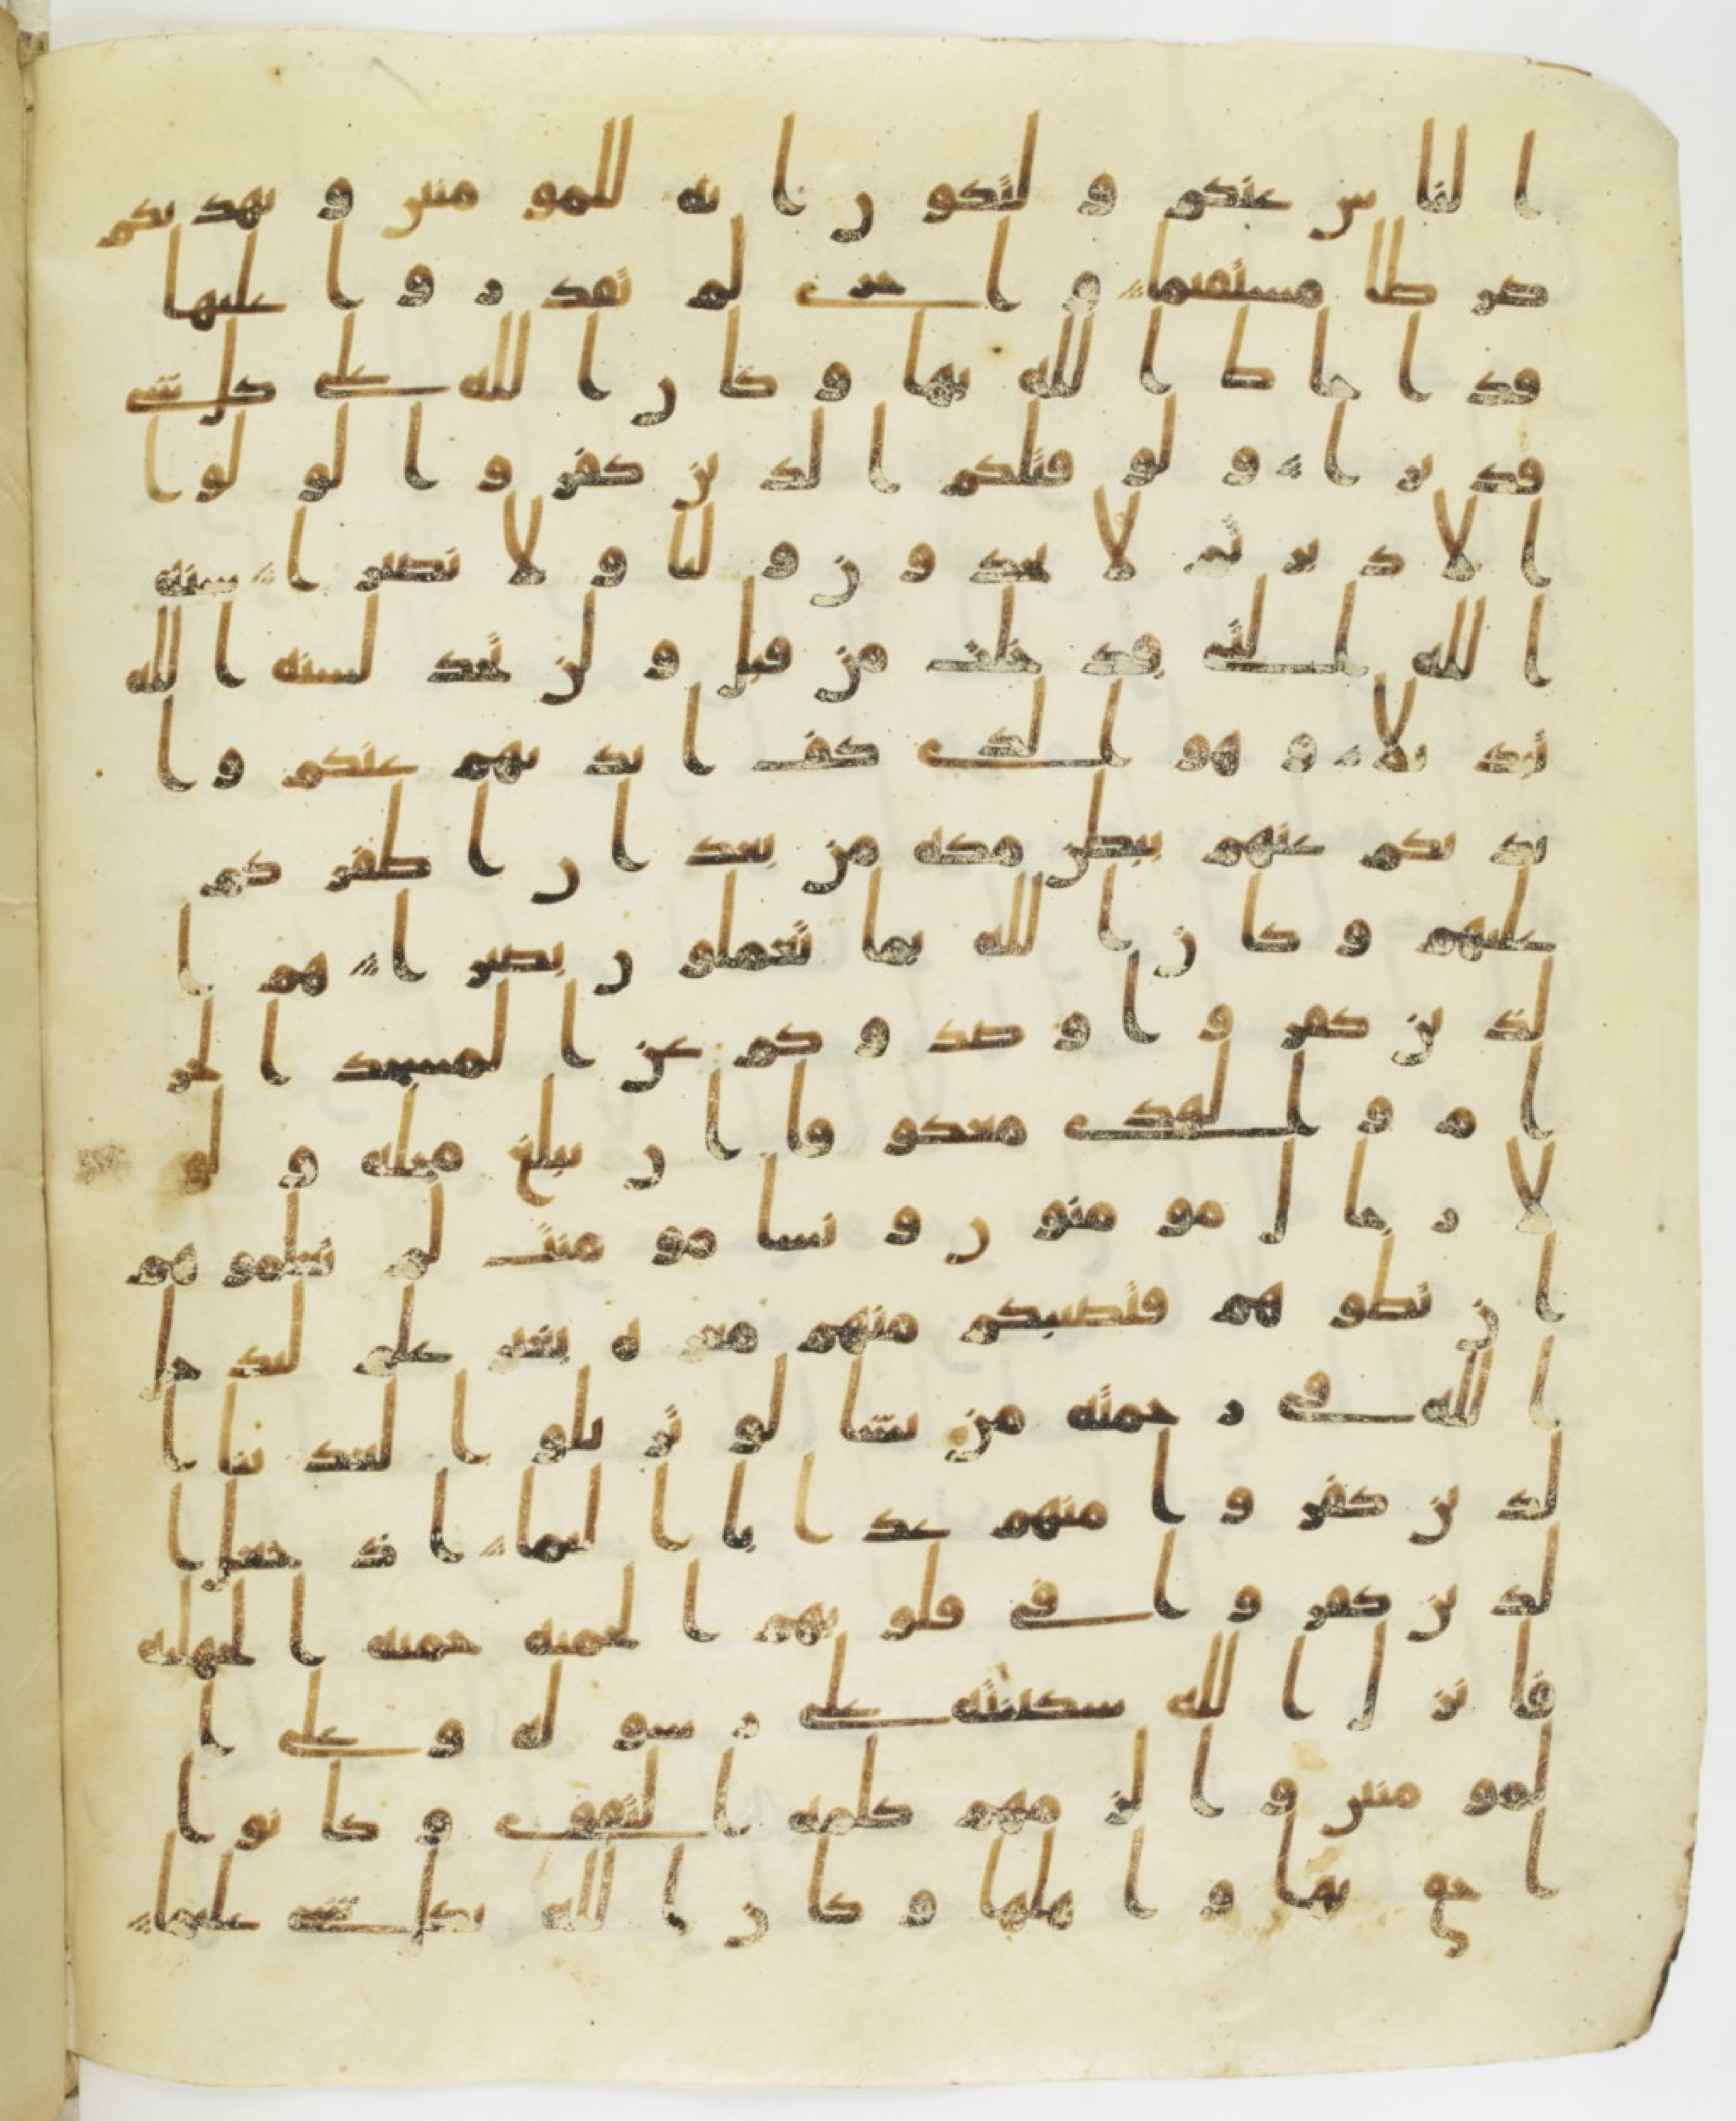 الناس عنكم ولتكون ايه للمومنين ويهديكم
صرطا مستقيما واخرى لم تقدروا عليها
قد احاط الله بها وكان الله على كل شى
قديرا ولو قتلكم الذين كفروا لولوا
الادبر ثم لا يجدون وليا ولا نصيرا سنه
الله التى قد خلت من قبل ولن تجد لسنه الله
تبديلا وهو الذى كف ايديهم عنكم وا
يديكم عنهم ببطن مكه من بعد ان اظفركم
عليهم وكان الله بما تعملون بصيرا هم ا
لذين كفروا وصدوكم عن المسجد الحر
ام والهدى معكوفا ان يبلغ محله ولو
لا رجال مومنون ونسا مومنت لم تعلموهم
ان تطوهم فتصيبكم منهم معره بغير علم ليدخل
الله فى رحمته من يشا لو تزيلوا لعذبنا ا
لذين كفروا منهم عذابا اليما اذ جعل ا
لذين كفروا فى قلوبهم الحميه حميه الجهليه
فانزل الله سكينته على رسوله وعلى ا
لمومنين والزمهم كلمه التقوى وكانوا
احق بها واهلها وكان الله بكل شى عليما